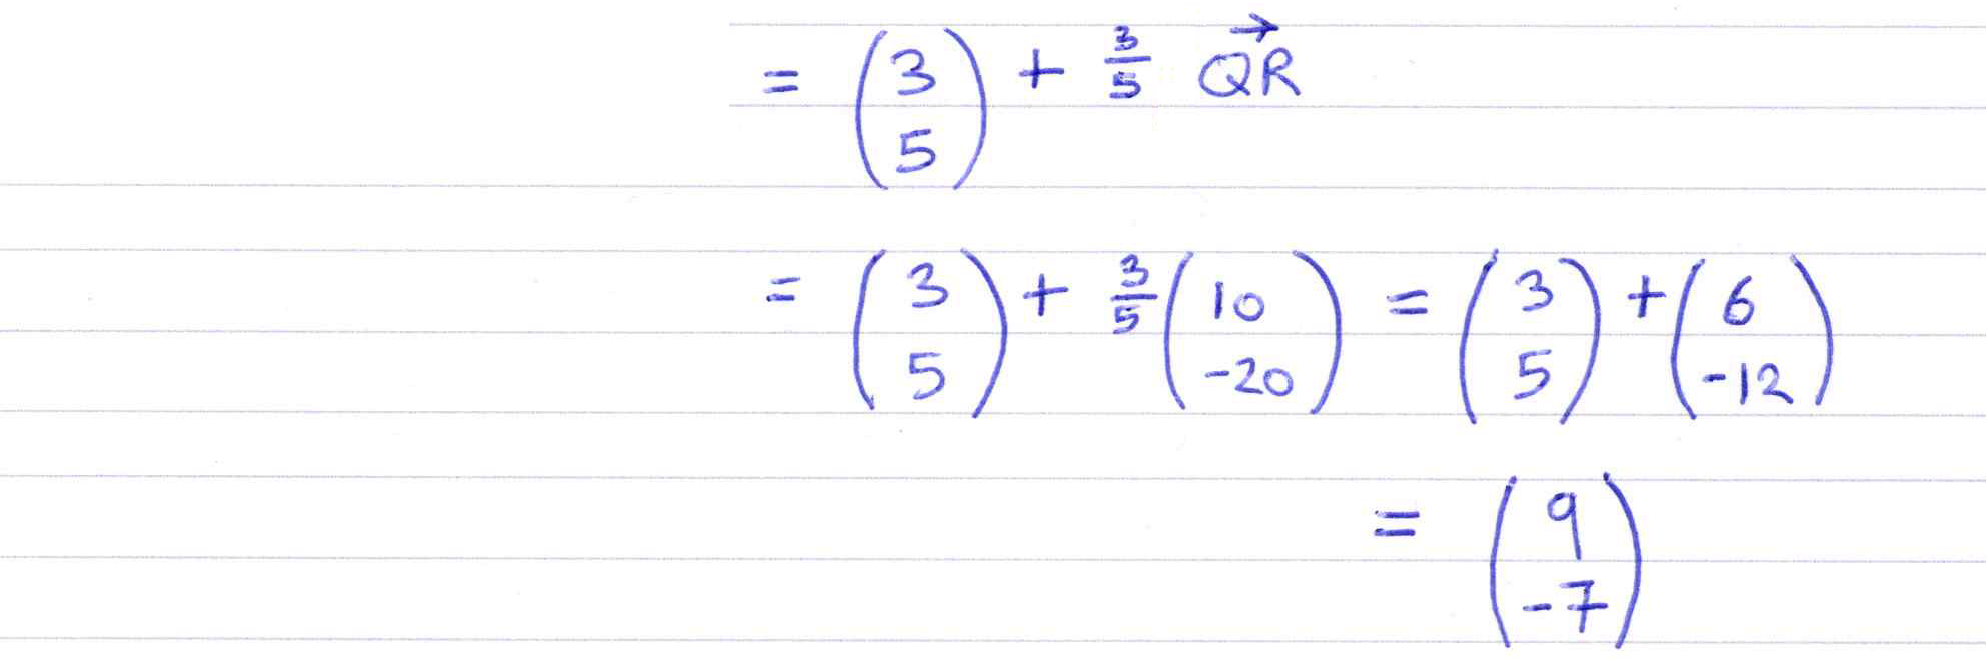 = (3 5) + 3/5 QR→
= (3 5) + 3/5 (10 -20) = (3 5) + (6 -12)
= (9 -7)